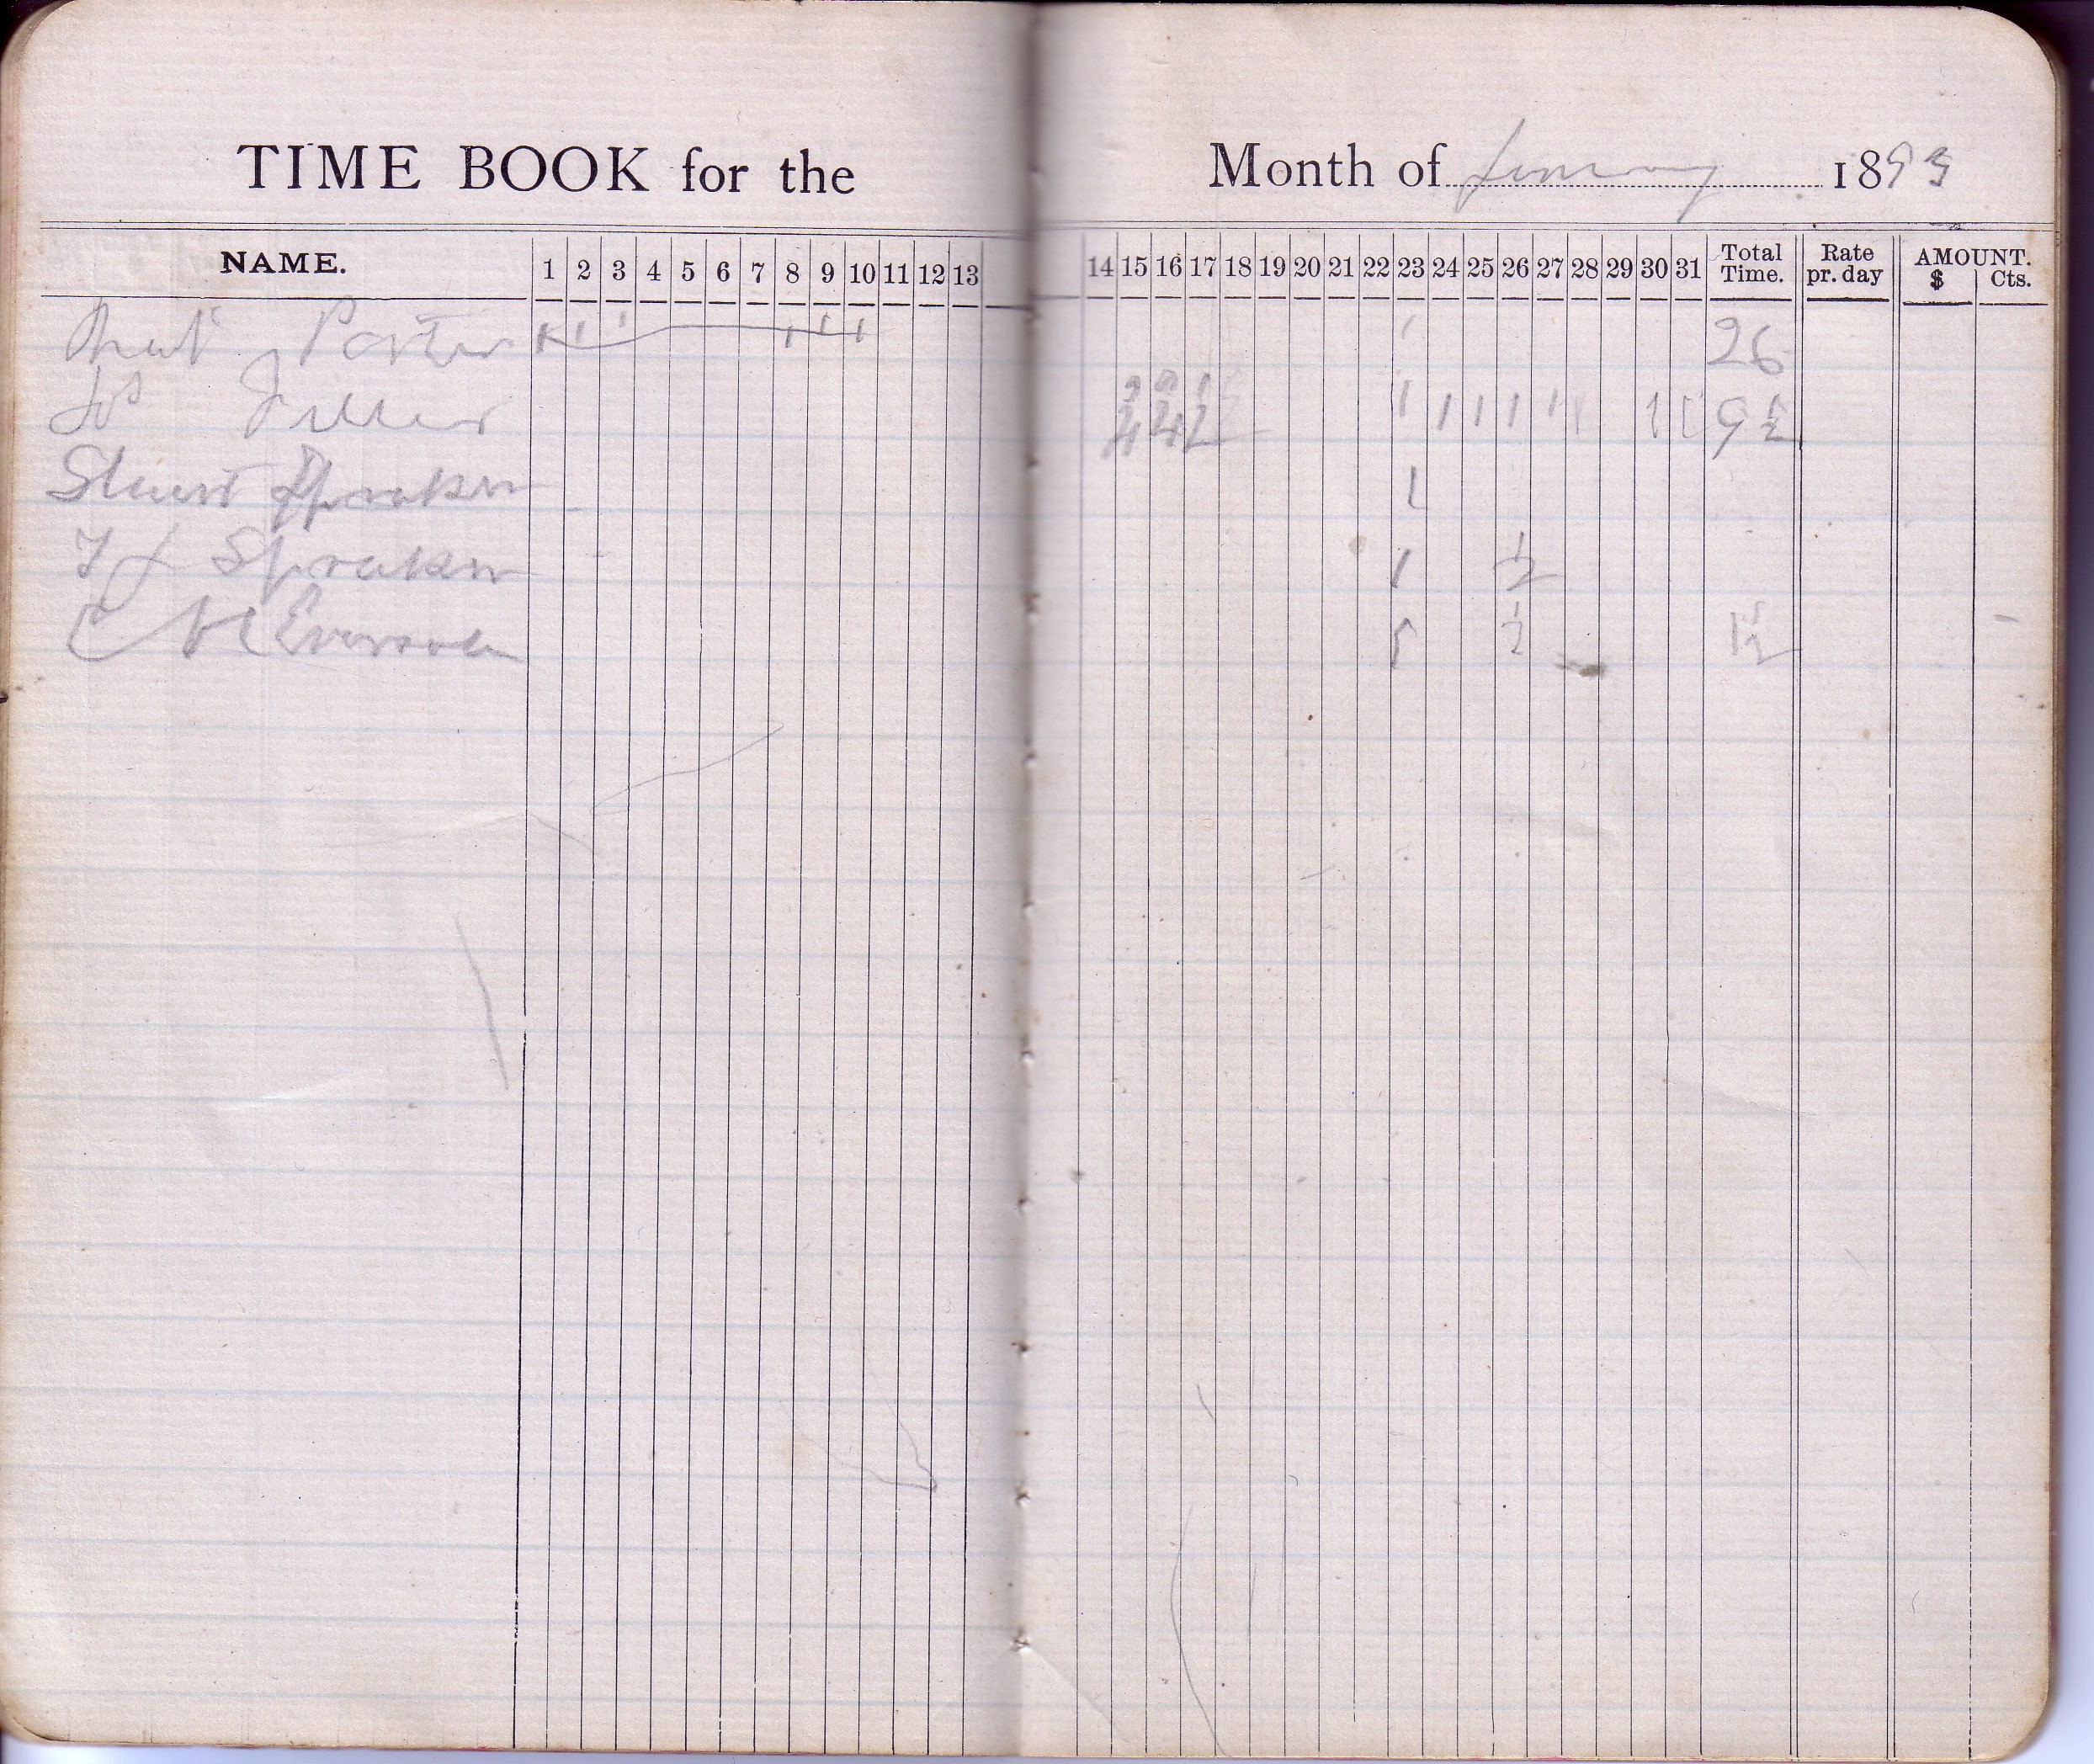 TIME BOOK for the Month of January 1893
NAME. 1 2 3 4 5 6 7 8 9 10 11 12 13 14 15 16 17 18 19 20 21 22 23 24 25 26 27 28 29 30 31 Total Time. Rate pr. day AMOUNT. $ Cts.
Porter 1 1 1 1 1 1 1 26
3/4 3/4 1/2 1 1 1 1 1 1 1 9 1/2
Stuart Spraker 1
Spraker 1 1/2
C H Eversole 1 1/2 1 1/2